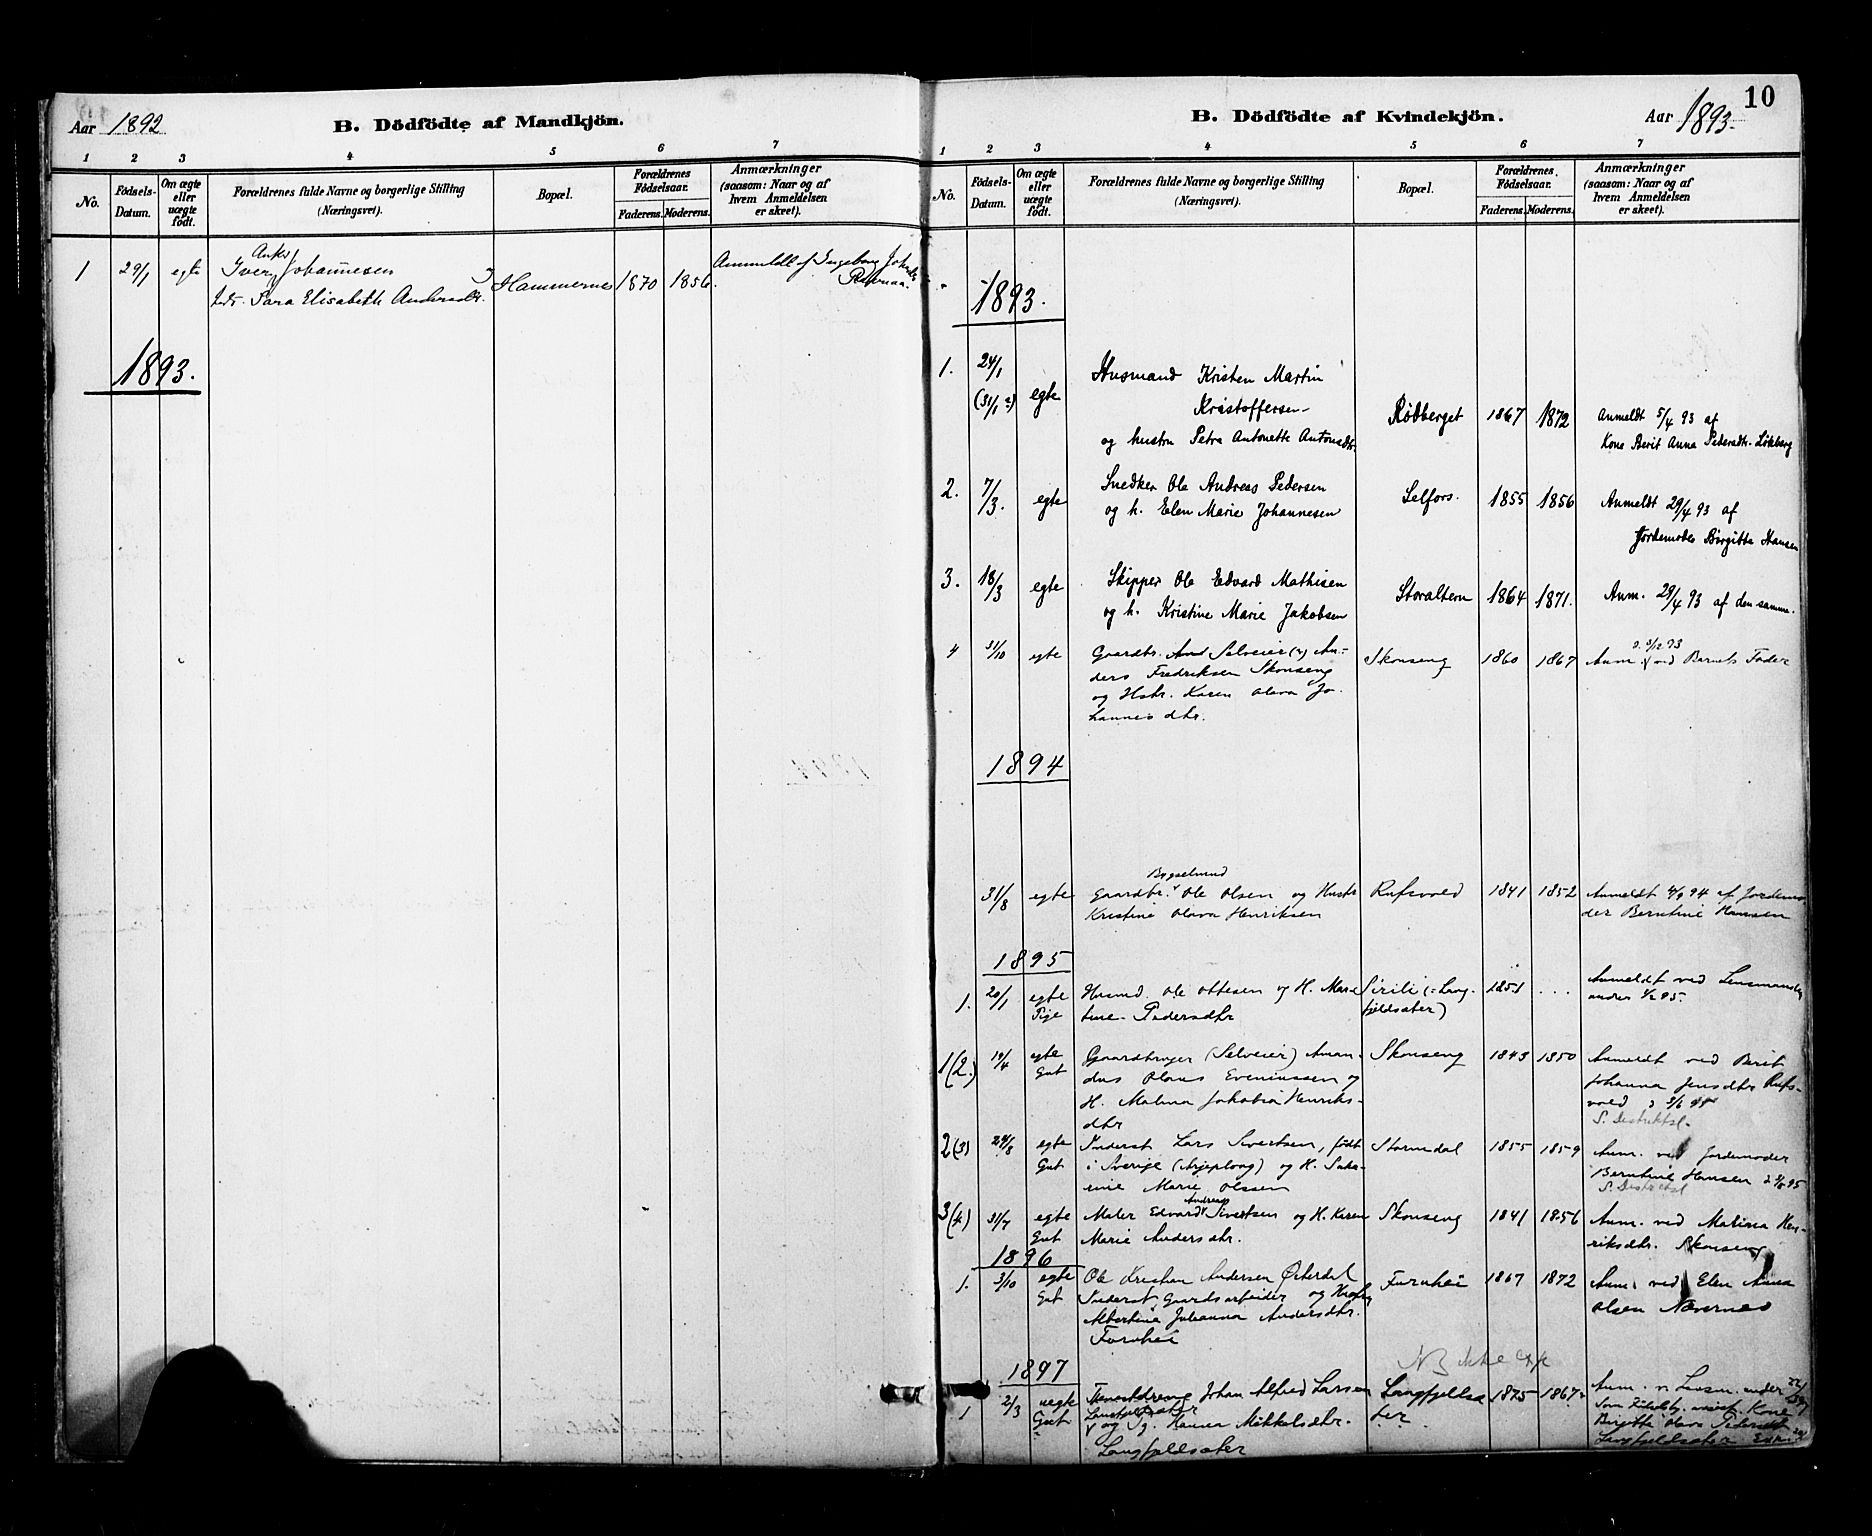 Aar 1892
B. Dödfödte af Mandkjön.
1 2 3 4 5 6 7
No.
Födsels-
Datum.
Om ægte
eller
uægte
födt.
Forældrenes fulde Navne og borgerlige Stilling
(Næringsvei).
Bopæl.
Forældrenes
Födselsaar.
Faderens. Moderens.
Anmærkninger
(saasom: Naar og af
hvem Anmeldelsen
er skeet).
1 29/1 egte Iver Johannesen
Sara Elisabeth Hammernes 1870 1856. Anmeldt af Ingeborg
1893.
10
B. Dödfödte af Kvindekjön.
Aar 1893.
1 2 3 4 5 6 7
No.
Födsels-
Datum.
Om ægte
eller
uægte
födt.
Forældrenes fulde Navne og borgerlige Stilling
(Næringsvei).
Bopæl.
Forældrenes
Födselsaar.
Faderens. Moderens.
Anmærkninger
(saasom: Naar og af
hvem Anmeldelsen
er skeet).
1893.
1. 24/1 Husmand Kristen Martin
(31/1 ?) egte Kristoffersen Rödberget 1867 1872 Anmeldt 5/4 93 af
og hustru Petra Antonette Antonsdtr. Kone Berit Anna Pedersdtr. Lökberg
2. 7/3. egte Snedker Ole Andreas Pedersen Selfors. 1855 1856 Anmeldt 29/4 93 af
og h. Elen Marie Johannesen Jordemoder Birgitte Hansen
3. 18/3 egte Skipper Ole Edvard Mathisen Storalteren 1864 1871. Anm. 29/4 93 af den samme.
og h. Kristine Marie Jakobsen
4 31/10 egte Gaardbr. Selveier An-
ders Fredriksen Skonseng Skonseng 1860 1867 Anm. ved Barnets Fader
og Hstr. Karen Olava Jo-
hannesdtr.
1894
Bygselmand
31/8 egte Gaardbr. Ole Olsen og Hustr Rufsvold 1841 1852 Anmeldt 4/9 94 af Jordemo-
Kristine Olava Henriksen der Berntine Hansen
1895
1. 20/1 egte Husmd. Ole Ottesen og H. Mar- Sirili (= Lang- 1851 ... Anmeldt ved Lensmanden
Pige tine Pedersdtr fjeldsæter) under 1/2 95.
1(2.) 19/4 egte Gaardbruger (Selveier) Aman- Skonseng 1843 1850 Anmeldt ved Berit
Gut dus Olaus Eveniussen og Johanna Jensdtr Rufs-
H. Malina Jakobia Henriks- vold
dtr S. Distriktsl.
2(3) 24/8 egte Inderst Lars Sivertsen, født Stormdal 1855 1859 Anm. ved Jordemoder
Gut i Sverige (Arjeplog) og H. Berntine Hansen
Marie Olssen S. Distriktsl
Andreas
3(4) 31/7 egte Maler Edvard Sivertsen og H. Karen Skonseng 1841 1856 Anm. ved Malina Hen-
Gut Marie Andersdtr. riksdtr. Skonseng
1896
1. 3/10 egte Ole Kristian Andersen Østerdal Furuhei 1867 1872 Anm. ved Elen Anna
Gut Inderst, Gaardsarbeider og Olsen Nævernes
Albertine Julianna Andersdtr.
Furuhei
1897
1 2/3 uegte Tjenestdreng Johan Alfred Larsen Langfjellsæ- 1875 1867 Anm. v. Lensm. under
Gut Langfjeldsæter ter
og Pg. Hanna Mikkelsdtr. Birgitte Olava Pedersdtr
Langfjeldsæter Langfjeldsæter